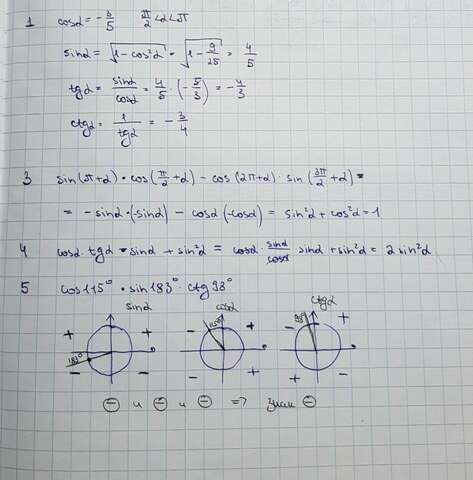 1 cosα = -3/5 π/2 < α < π
sinα = √(1 - cos²α) = √(1 - 9/25) = 4/5
tgα = sinα/cosα = 4/5 · (-5/3) = -4/3
ctgα = 1/tgα = -3/4
3 sin(π+α) · cos(π/2+α) - cos(2π+α) sin(3π/2+α) =
= -sinα · (-sinα) - cosα(-cosα) = sin²α + cos²α = 1
4 cosα · tgα · sinα + sin²α = cosα · sinα/cosα sinα + sin²α = 2 sin²α
5 cos 115° · sin 183° · ctg 93°
sinα cosα ctgα
+ + - + - +
183°
- - - + + -
⊖ и ⊖ и ⊖ => знак ⊖